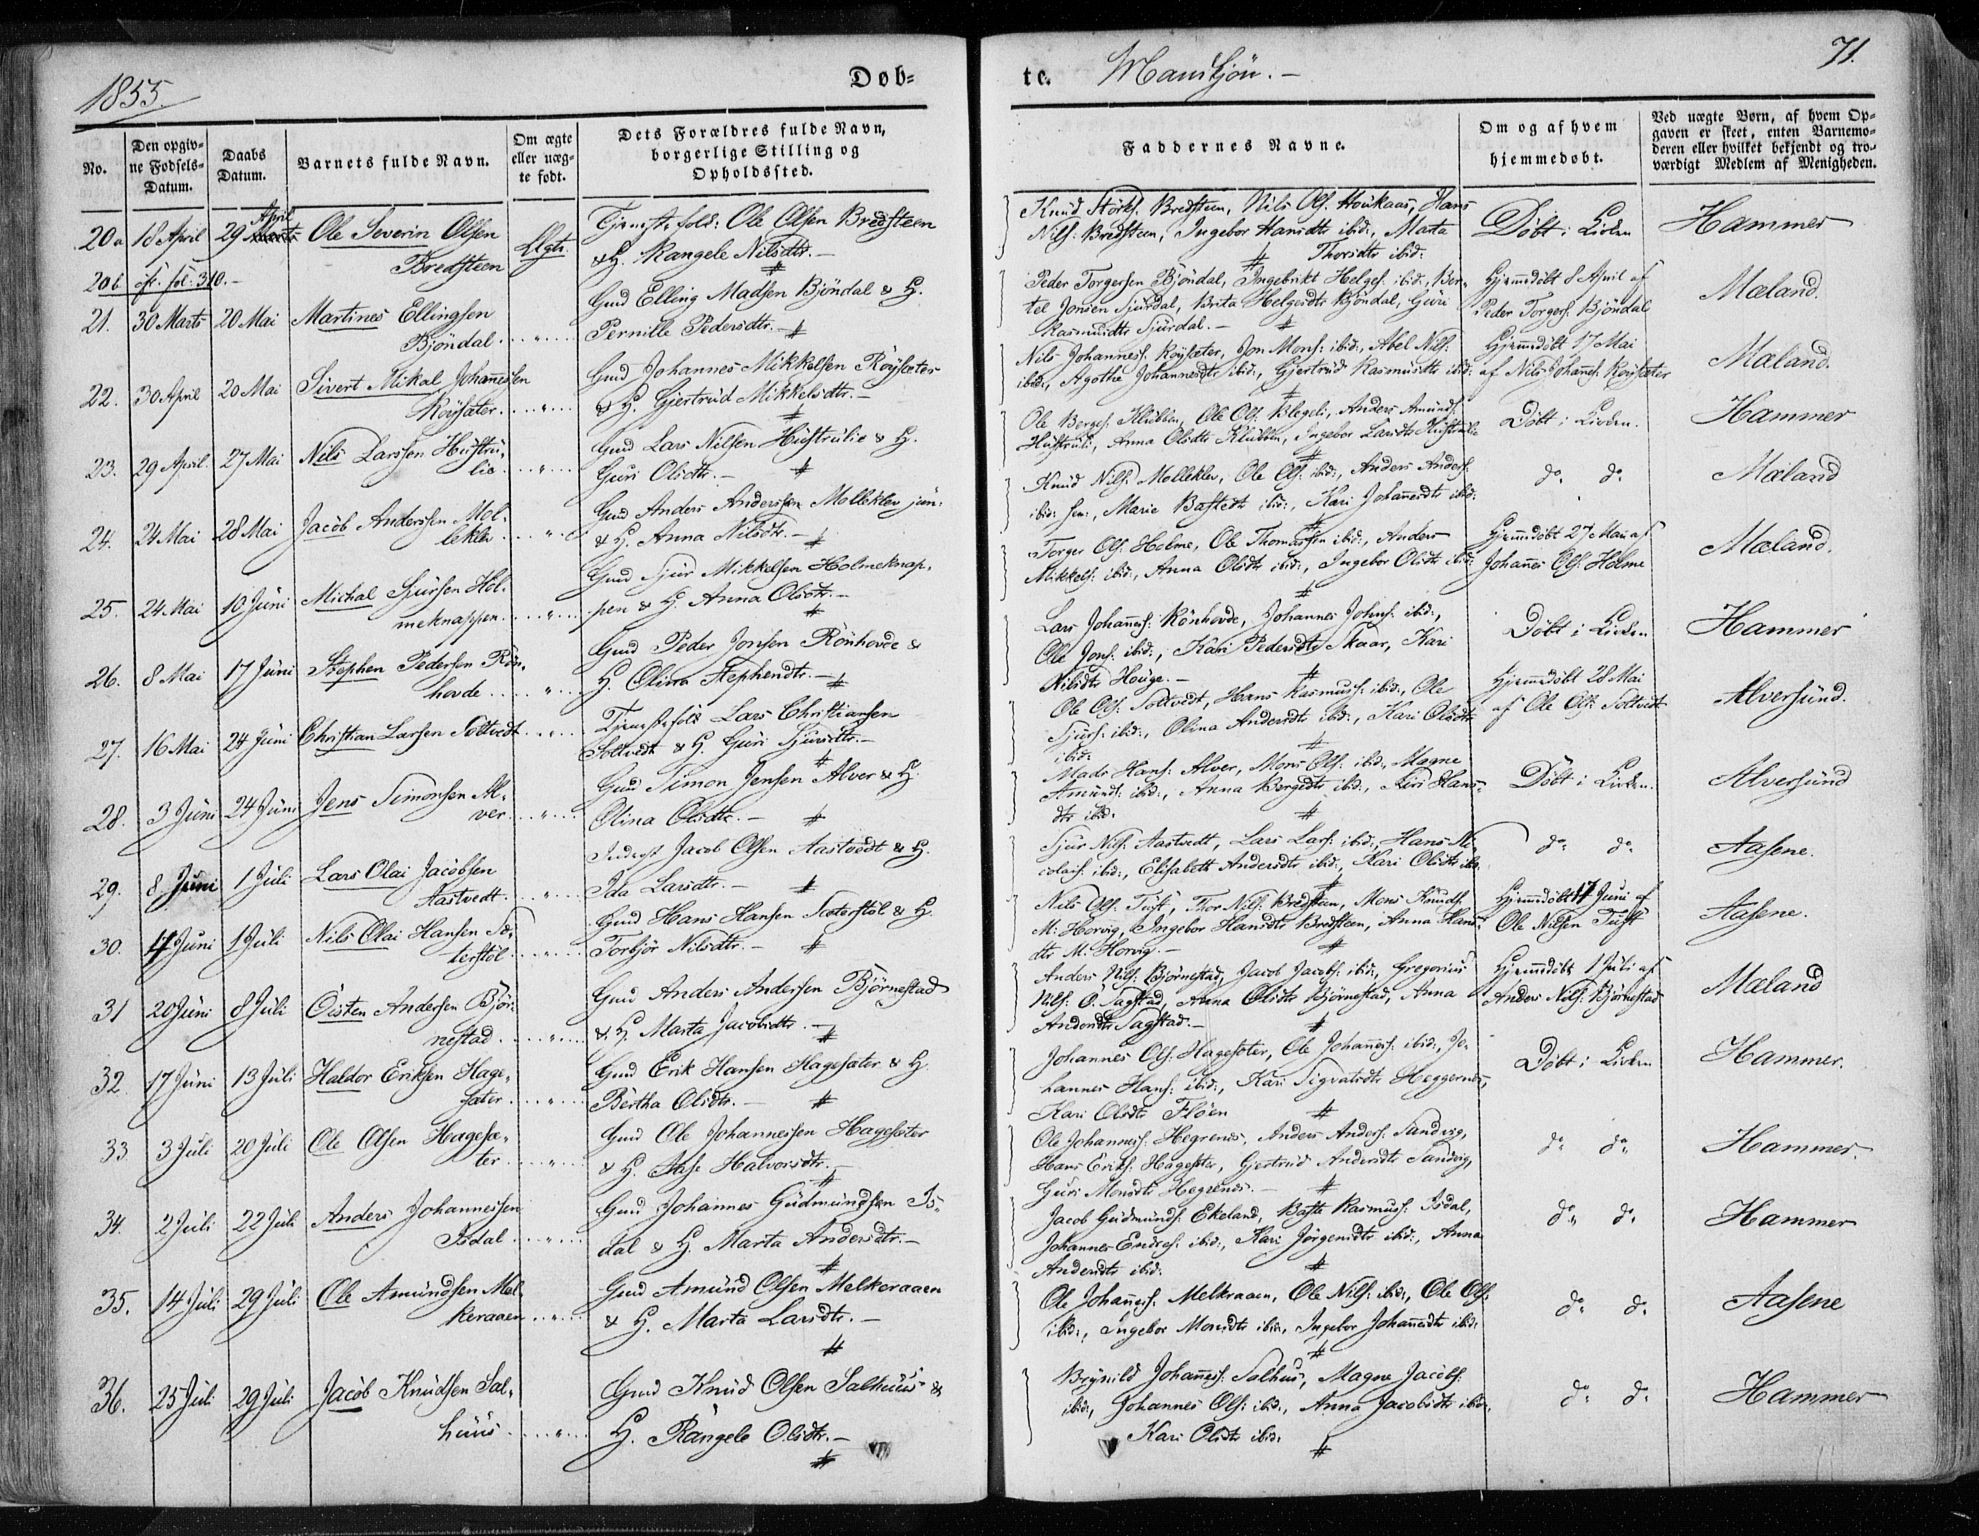 1855.
Døb=
te. Mandkjön. —
71.
No.
Den opgiv-
ne Fødsels-
Datum.
Daabs
Datum.
Barnets fulde Navn.
Om ægte
eller uæg-
te født.
Dets Forældres fulde Navn,
borgerlige Stilling og
Opholdssted.
Faddernes Navne.
Om og af hvem
hjemmedøbt.
Ved uægte Børn, af hvem Op-
gaven er skeet, enten Barnemo-
deren eller hvilket bekjendt og tro-
værdigt Medlem af Menigheden.
20a 18 April 29 April Ole Severin Olsen
Bredsteen
Tjenestefolk: Ole Olsen Bredsteen
& H. Rangele Nilsdtr. —
Knud Störks. Bredsteen, Nils Ols. Houkaas, Hans
Nils: Bredsteen, Ingebor Hansdtr ibid:, Marta
Thorsdtr ibid:
Döbt i Kirken
Hammer
20b cfr. fol. 310. —
21. 30 Marts 20 Mai Martines Ellingsen
Bjöndal
Gmd Elling Madsen Bjöndal & H.
Pernille Pedersdtr. —
Peder Torgersen Bjöndal, Ingebrikt Helges. ibid:, Ber-
tel Jonsen Sjurdal, Brita Helgesdtr Bjöndal, Guri
Rasmusdtr Sjurdal. —
Hjemmdöbt 8 April af
Peder Torgers. Bjöndal
Mæland.
22. 30 April 20 Mai Sivert Mikal Johannessen
Röysæter
Gmd Johannes Mikkelsen Röysæter
& H. Gjertrud Mikkelsdtr. —
Nils Johanness. Röysæter, Jon Mons: ibid:, Abel Nils:
ibid:, Agothe Johannesdtr ibid:, Gjertrud Rasmusdtr ibid:
Hjemmdöbt 17 Mai
af Nils Johaness. Röysæter
Mæland.
23. 29 April 27 Mai Nils Larssen Hustru-
lie
Gmd Lars Nilssen Hustrulie & H.
Guri Olsdtr. —
Ole Berges. Klubben, Ole Ols. Blegeli, Anders Amunds.
Hustruli, Anna Olsdtr Klubben, Ingebor Larsdtr Hustruli
Döbt i Kirken.
Hammer
24. 24 Mai 28 Mai Jacob Anderssen Mol-
leklev
Gmd Anders Anderssen Molleklev jun:
& H. Anna Nilsdtr. —
Knud Nils. Molleklev, Ole Ols. ibid:, Anders Anders.
ibid: sen:, Marie Bastedtr ibid:, Kari Johannesdtr ibid:
do do
Mæland
25. 24 Mai 10 Juni Michal Sjursen Hol-
meknappen
Gmd Sjur Mikkelsen Holmeknap-
pen & H. Anna Olsdtr —
Torger Ols. Holme, Ole Thomassen ibid:, Anders
Mikkels. ibid:, Anna Olsdtr ibid:, Ingebor Olsdtr ibid:
Hjemmdöbt 27 Mai af
Johannes Ols. Holme
Mæland.
26. 8 Mai 17 Juni Stephen Pedersen Rön-
hovde
Gmd Peder Jonsen Rönhovde &
H. Olina Stephendtr. —
Lars Johanness. Rönhovde, Johannes Johns. ibid:,
Ole Jons. ibid:, Kari Pedersdtr Skaar, Kari
Nilsdtr Houge. —
Döbt i Kirken
Hammer
27. 16 Mai 24 Juni Christian Larsen Soltvedt
Tjenestefolk Lars Christiansen
Soltvedt & H. Guri Sjursdtr. —
Ole Ols. Soltvedt, Hans Rasmuss. ibid:, Ole
Sjurs. ibid:, Olina Andersdtr ibid:, Kari Olsdtr
ibid:
Hjemmdöbt 28 Mai
af Ole Ols. Soltvedt
Alversund.
28. 3 Juni 24 Juni Jens Simonsen Al-
ver
Gmd Simon Jensen Alver & H.
Olina Olsdtr. —
Mads Hans. Alver, Mons Ols. ibid:, Magne
Amunds. ibid:, Anna Bergedtr ibid:, Siri Hans-
dtr ibid:
Döbt i Kirken.
Alversund
29. 8 Juni 1 Juli Lars Olai Jacobsen
Aastvedt
Inderst Jacob Olsen Aastvedt & H.
Ida Larsdtr. —
Sjur Nils. Aastvedt, Lars Lars. ibid:, Hans Ni-
colais. ibid:, Elisabeth Andersdtr ibid:, Kari Olsdtr ibid:
do do
Aasene.
30. 4 Juni 1 Juli Nils Olai Hansen Sæ-
terstöl
Gmd Hans Hansen Sæterstöl & H.
Torbjör Nilsdtr. —
Nils Ols. Tuft, Thor Nils. Bredsteen, Mons Knuds.
M: Horvig, Ingebor Hansdtr Bredsteen, Anna Hans-
dtr M: Horvig. —
Hjemmdöbt 17 Juni af
Ole Nilsen Tuft
Aasene.
31 20 Juni 8 Juli Öisten Andersen Björ-
nestad
Gmd Anders Andersen Björnestad
& H. Marta Jacobsdtr. —
Anders Nils. Björnestad, Jacob Jacobs. ibid:, Gregorius
Nils. Ö. Sagstad, Anna Olsdtr Björnestad, Anna
Andersdtr Sagstad. —
Hjemmdöbt 1 Juli af
Anders Nils. Björnestad
Mæland
32. 17 Juni 13 Juli Haldor Eriksen Hage-
sæter
Gmd Erik Hansen Hagesæter & H.
Bertha Olsdtr. —
Johannes Ols. Hagesæter, Ole Johanness. ibid:, Jo-
hannes Hans. ibid:, Kari Sigvatsdtr Heggernes,
Kari Olsdtr Flöen
Döbt i Kirken
Hammer.
33 3 Juli 20 Juli Ole Olsen Hagesæ-
ter
Gmd Ole Johannessen Hagesæter
& H. Aase Halvorsdtr. —
Ole Johanness. Hegrenes, Anders Anders. Sandvig,
Hans Eriks. Hagesæter, Gjertrud Andersdtr Sandvig,
Guri Monsdtr Hegrenes. —
do do
Hammer.
34. 2 Juli 22 Juli Anders Johannessen
Isdal
Gmd Johannes Gudmundsen Is-
dal & H. Marta Andersdtr. —
Jacob Gudmunds. Ekeland, Baste Rasmuss. Isdal,
Johannes Endres. ibid:, Kari Jörgensdtr ibid:, Anna
Andersdtr ibid:
do do
Hammer
35. 14 Juli 29 Juli Ole Amundsen Mel-
keraaen
Gmd Amund Olsen Melkeraaen
& H. Marta Larsdtr. —
Ole Johanness. Melkeraaen, Ole Nils. ibid:, Ole Ols.
ibid:, Ingebor Monsdtr ibid:, Ingebor Johannesdtr ibid:
do do
Aasene
36. 25 Juli 29 Juli Jacob Knudsen Sal-
huus
Gmd Knud Olsen Salhuus &
H. Rangele Olsdtr. —
Brynild Johanness. Salhuus, Magne Jacobs.
ibid:, Johannes Ols. ibid:, Anna Jacobsdtr ibid:,
Kari Olsdtr ibid:
do do
Hammer